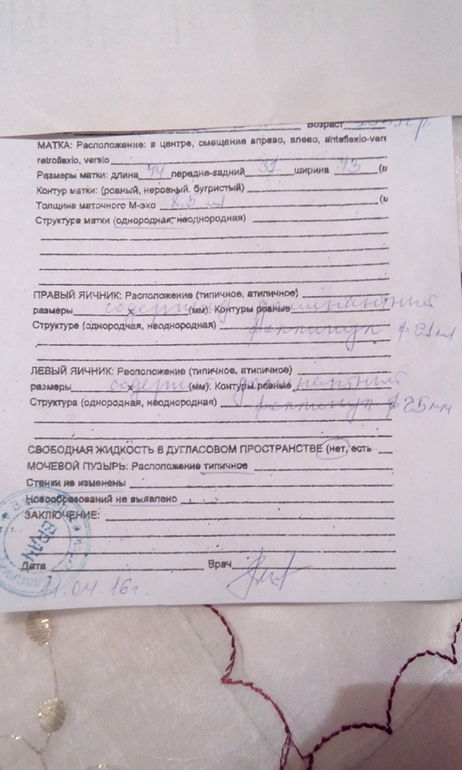 Возраст
МАТКА: Расположение: в центре, смещение вправо, влево, anteflexio-ver
retroflexio, versio
Размеры матки: длина 44 передне-задний 31 ширина 43 (м
Контур матки: (ровный, неровный, бугристый)
Толщина маточного М-эхо 8.5 (м
Структура матки (однородная, неоднородная)
ПРАВЫЙ ЯИЧНИК: Расположение (типичное, атипичное)
размеры содержит х (мм). Контуры ровные доминантный
Структура (однородная, неоднородная) фолликул ф 21мм
ЛЕВЫЙ ЯИЧНИК: Расположение (типичное, атипичное)
размеры содержит х (мм). Контуры ровные доминантный
Структура (однородная, неоднородная) фолликул ф 25мм
СВОБОДНАЯ ЖИДКОСТЬ В ДУГЛАСОВОМ ПРОСТРАНСТВЕ (нет, есть
МОЧЕВОЙ ПУЗЫРЬ: Расположение типичное
Стенки не изменены
Новообразований не выявлено
ЗАКЛЮЧЕНИЕ:
ВРАЧ
Дата Врач
11.04.16г.